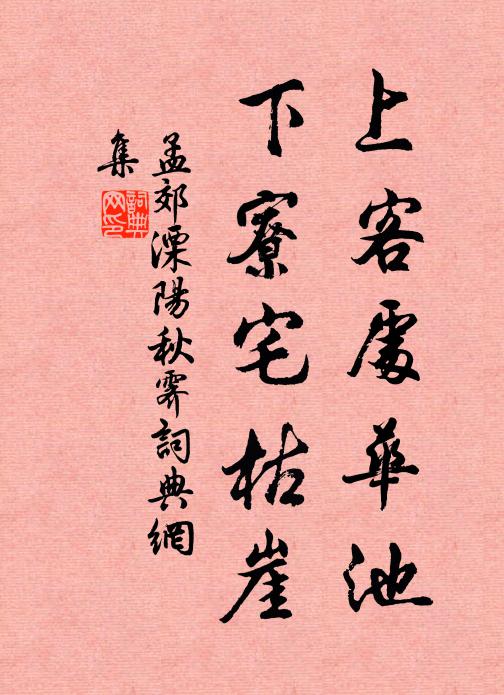 上客處華池
下寮宅枯崖
孟郊溧陽秋霽詞典網
集
詞典網印